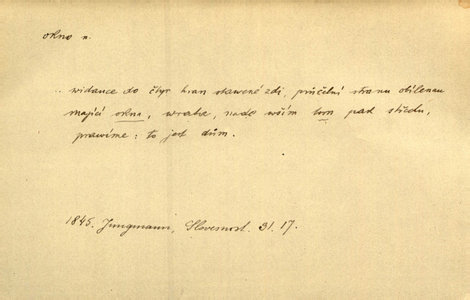 okno n.
.. widauce do čtyr hran stawené zdi, průčelní stranu obílenau
mající okna, wrata, nade wším tom pak středu,
prawíme: to jest dům.
1845. Jungmann, Slovesnost. 31. 17.